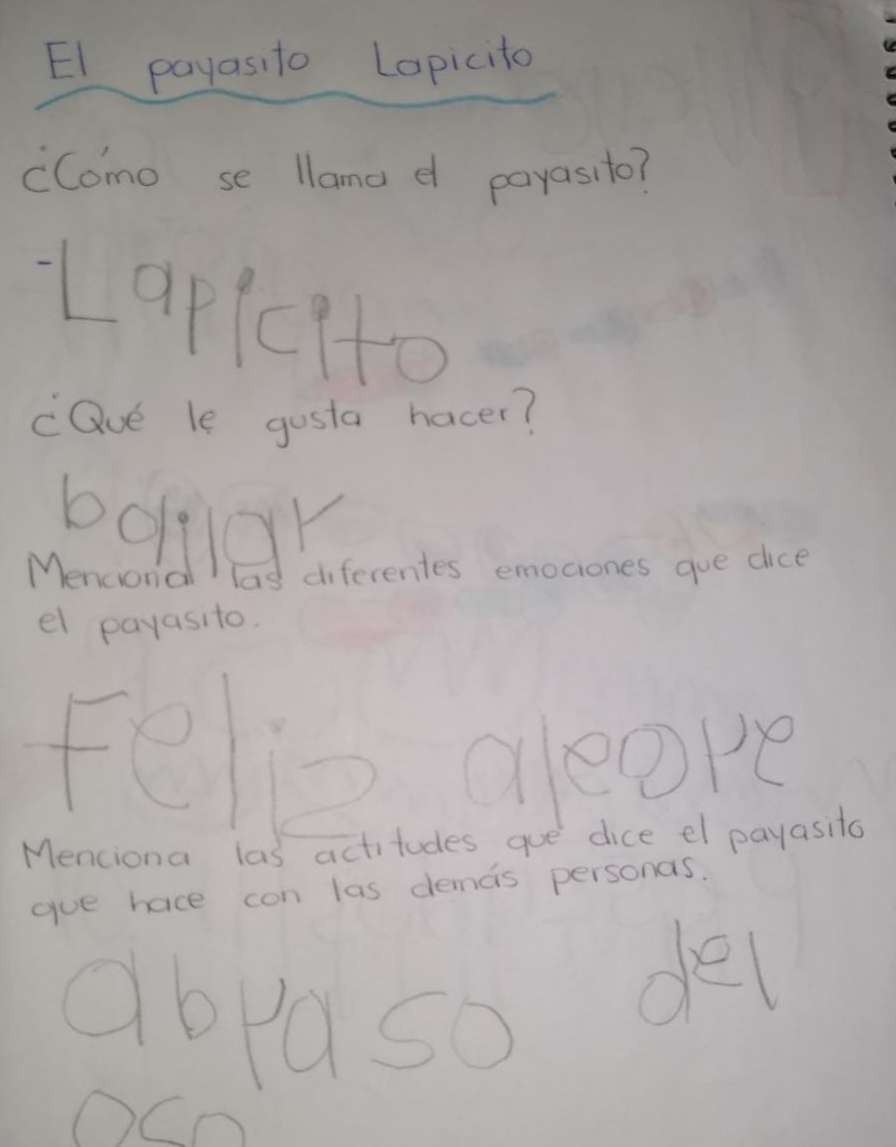 El payasito Lapicito
¿Cómo se llama el payasito?
-Lapicito
¿Qué le gusta hacer?
bailar
Menciona las diferentes emociones que dice
el payasito.
Feliz alegre
Menciona las actitudes que dice el payasito
que hace con las demás personas.
abraso del
oso